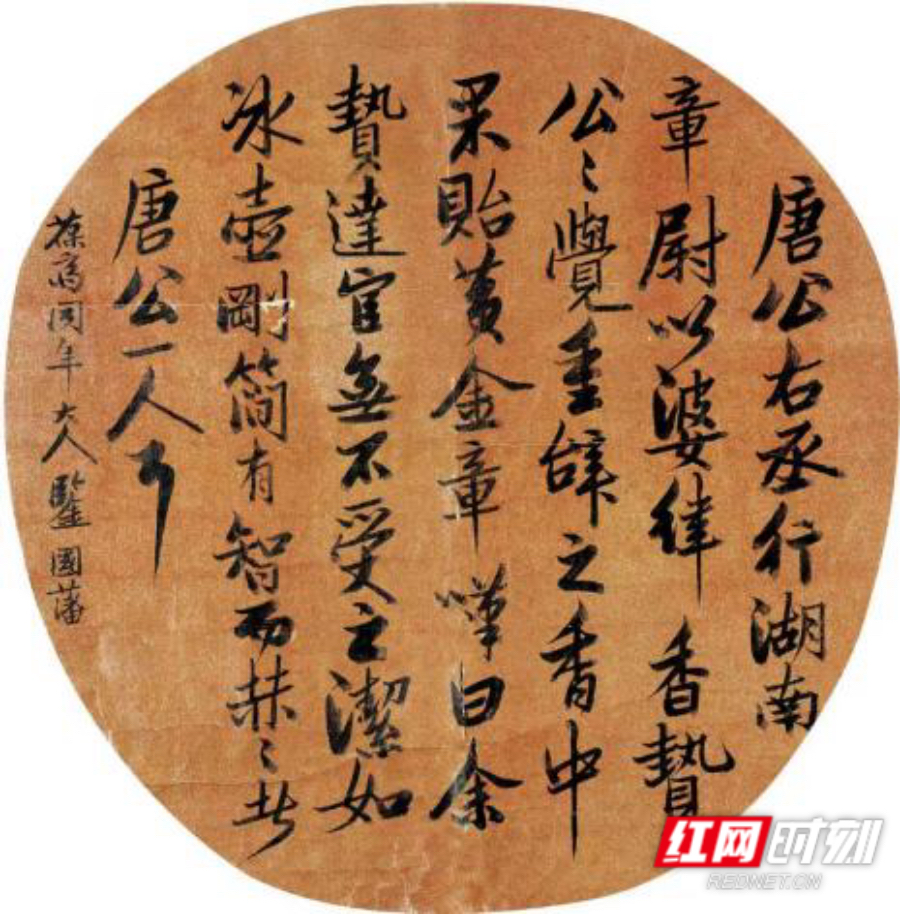 唐公右丞行湖南
章尉以婆律香贄
公〻覺重辞之香中
果貽黃金章嘆曰余
贄達官無不受之潔如
冰壺剛簡有智而赫〻者
唐公一人
葆齋同年大人鑒國藩
红网时刻
REDNET.CN